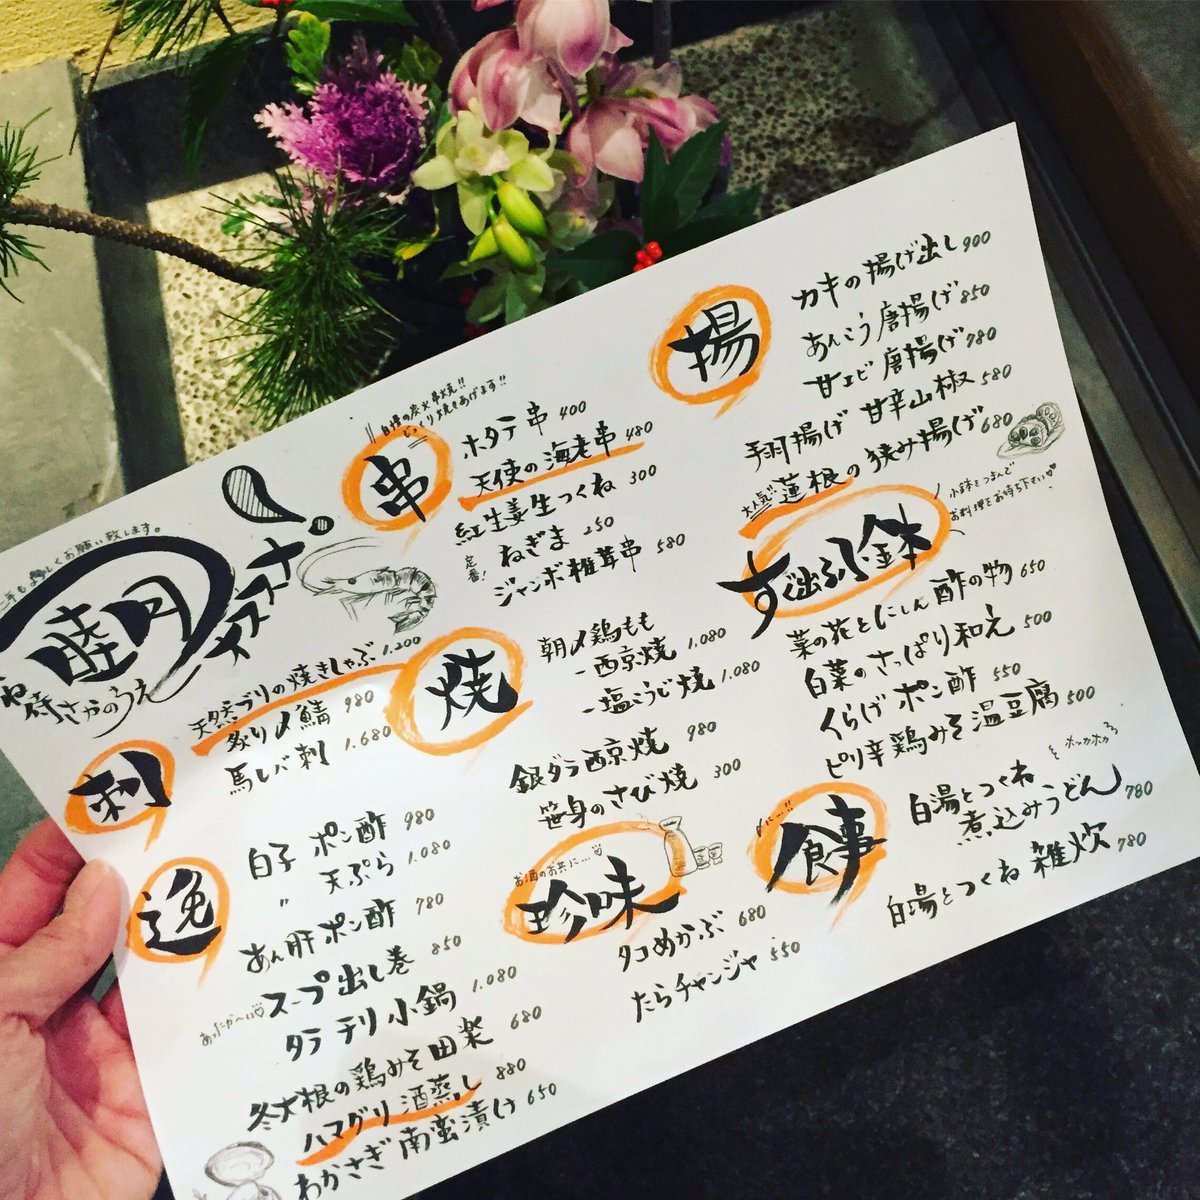 しくお願い致します。
睦月
オススメ!
刺
天然ブリの焼きしゃぶ 1.200
炙り〆鯖 980
馬レバ刺 1.680
逸
白子 ポン酢 980
〃 天ぷら 1.080
あん肝ポン酢 780
スープ出し巻 850
あったか〜い♡
タラチリ小鍋 1.080
冬大根の鶏みそ田楽 680
ハマグリ酒蒸し 880
わかさぎ南蛮漬け 650
串
自慢の炭火串焼!!
じっくり焼きあげます!!
ホタテ串 400
天使の海老串 480
紅生姜生つくね 300
定番! ねぎま 250
ジャンボ椎茸串 580
焼
朝〆鶏もも
-西京焼 1.080
-塩こうじ焼 1.080
銀ダラ西京焼 980
笹身のさび焼 300
珍味
お酒のお共に…♡
タコめかぶ 680
たらチャンジャ 550
揚
カキの揚げ出し 900
あんこう唐揚げ 850
甘エビ唐揚げ 780
手羽揚げ 甘辛山椒 580
大人気!! 蓮根の挟み揚げ 680
すぐ出る小鉢
小鉢をつまんで
お料理をお待ち下さい
菜の花とにしん酢の物 650
白菜のさっぱり和え 500
くらげポン酢 550
ピリ辛鶏みそ温豆腐 500
食事
〆に…!!
白湯とつくね
煮込みうどん 780
白湯とつくね雑炊 780